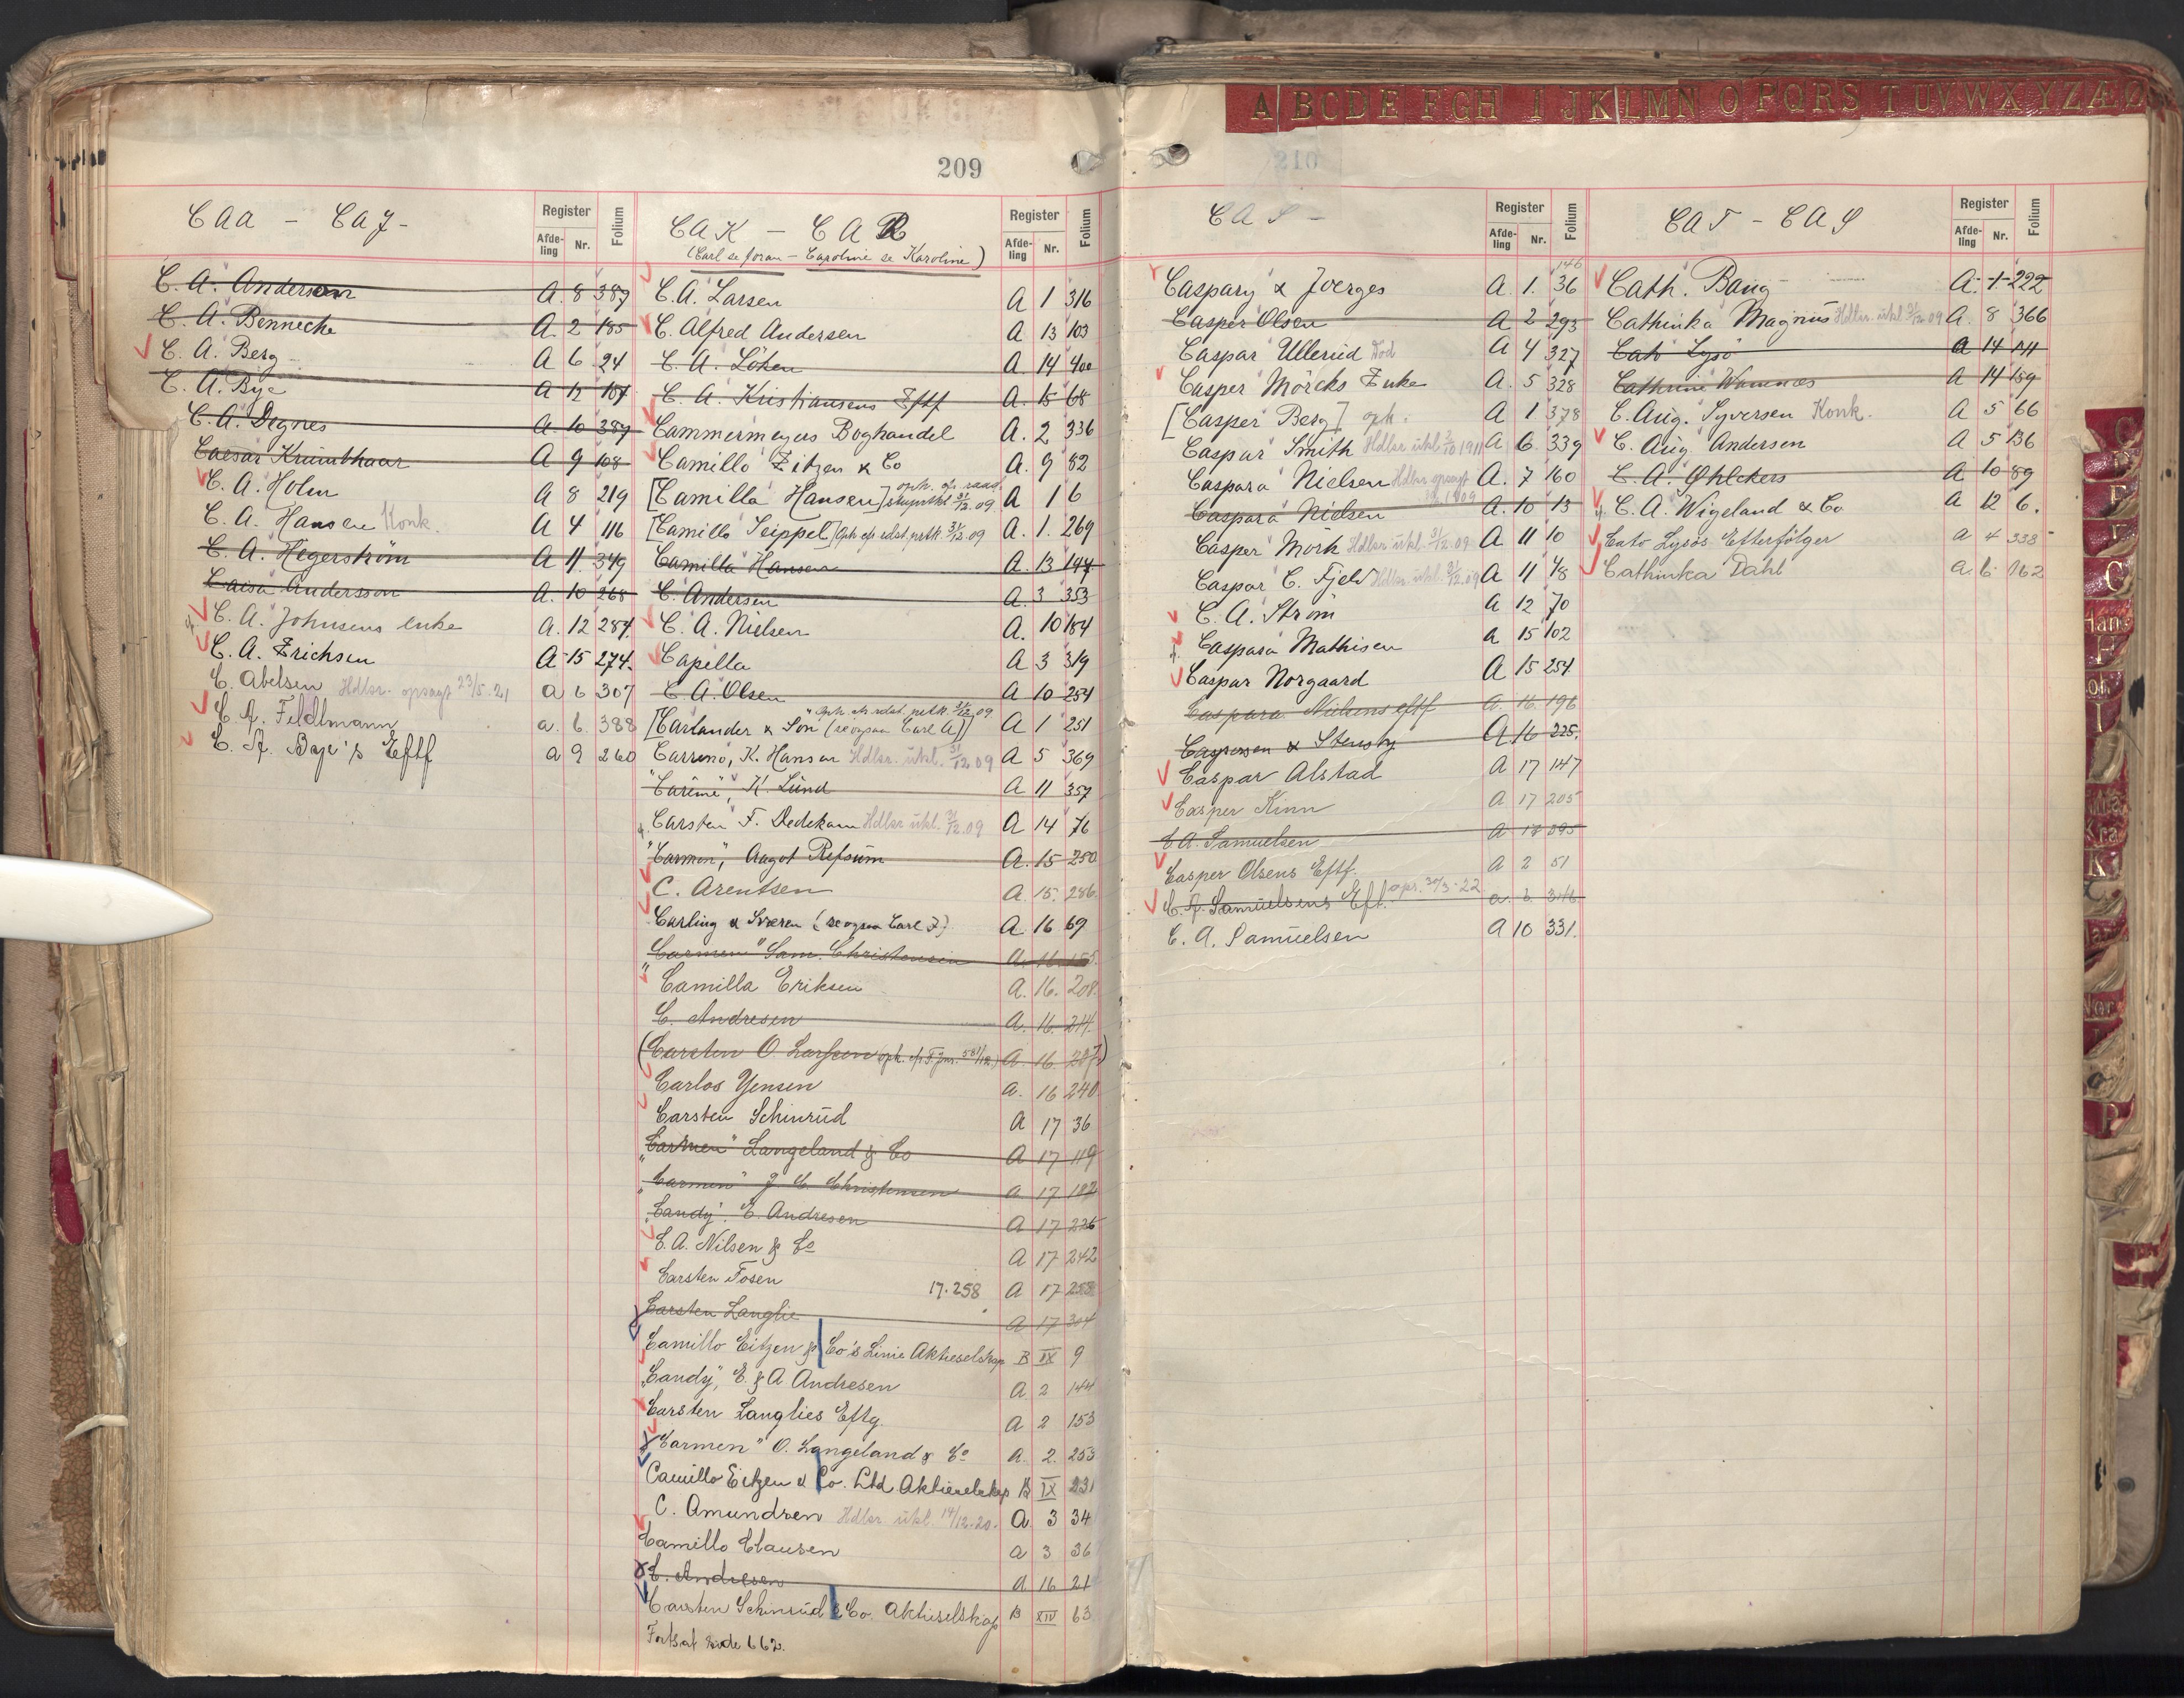 209
CAA - CAJ-
Register
Afde-ling Nr. Folium
C. A. Andersen A. 8 389
C. A. Bennecke A. 2 185
C. A. Berg A 6 24
C. A. Bye A 12 187
C. A. Degnes A. 10 389
Caesar Krumthaar A 9 108
C. A. Holm A 8 219
C. A. Hansen Konk. A 4 116
C. A. Hegerström A 11. 349
Caisa Andersson A. 10 268
C. A. Johnsens enke A. 12 284
C. A. Erichsen A 15 274.
C. Abelsen Hdlsr. opsagt 23/5.21 A 6 307
C. A. Feldtmann A. 6. 388
C. A. Bye's Eftf A 9 260
CAK - CAR
(Carl se foran - Caroline se Karoline)
Register
Afde-ling Nr. Folium
C. A. Larsen A 1 316
C. Alfred Andersen A 13 103
C. A. Löken A. 14 400
C. A. Kristiansens Eftf A. 15 68
Cammermeyers Boghandel A. 2 336
Camillo Eitzen & Co A. 9 82
[Camilla Hansen] 31/12.09. A 1 6
[Camillo Seippel] Oph. 31/12.09 A. 1. 269
Camilla Hansen A. 13 194
C. Andersen A. 3 353
C. A. Nielsen A. 10 184
Capella A 3 319
C A Olsen A 10 254
[Carlander & Son (se ogsaa Carl A)] 31/12.09 A 1 251
Carreno, K. Hansen Hdlsr. utkl. 31/12 09 A 5 369
"Carême", K. Lünd A 11 357
Carsten F. Dedekam Hdlsr utkl. 31/12.09 A 14 76
"Carmen", Aagot Refsum A. 15 250
C. Arentsen A. 15. 286.
Carling & Sveren (se ogsaa Carl J) A 16 69
"Carmen" Sam. Christensen A. 16
Camilla Eriksen A. 16. 208.
C. Andresen A. 16. 214.
(Carsten O. Larssen A. 16. 287)
Carlos Jensen A. 16 240
Carsten Schinrud A 17 36
"Carmen" Langeland & Co A 17 119
"Carmen" J. C. Christensen A 17 182
"Candy". E. Andresen A 17 226
C. A. Nilsen & Co A 17 242
Carsten Fosen 17.258 A 17 258
Carsten Langlie A 17 304
Camillo Eitzen & Co's Linie Aktieselskap B IX 9
"Candy", E. & A. Andresen A 2 144
Carsten Langlies Eftg. A 2 153
"Carmen" O. Langeland & Co A. 2. 253
Camillo Eitzen & Co. Ltd Aktieselskap B IX 231
C. Amundsen Hdlsr. utkl. 14/12-20. A 3 34
Camillo Clausen A 3 36
C. Andresen A 16 21
Carsten Schinrud & Co. Aktieselskap B XIV 63
Fortsat side 662.
A B C D E F G H I J K L M N O P Q R S T U V W X Y Z Æ Ø
210
CAS -
Register
Afde-ling Nr. Folium
146
Caspary & Joerges A. 1. 36
Casper Olsen A 2 293
Caspar Ullerud Död A 4 327
Casper Mörcks Enke A. 5 328
[Casper Berg] oph. A 1 378
Caspar Smith Hdlsr utkl 1911 A 6. 339
Caspara Nielsen Hdlsr opsagt A. 7 160
Caspara Nielsen A. 10 13
Casper Mörk Hdlsr utkl. 31/12.09 A 11 10
Caspar C. Fjeld Hdlsr utkl. 31/12.09 A 11 48
C. A. Ström A 12 70
Caspara Mathisen A 15 102
Caspar Norgaard A 15 254
Caspara Nielsens eftf A. 16. 196
Caspersen & Stensby A 16 225.
Caspar Alstad A 17 147
Casper Kinn A 17 205
C. A. Samuelsen A 17 395
Casper Olsens Eftf. A 2 51
C. A. Samuelsens Eft. A. 6. 346
C. A. Samuelsen A 10 331.
CAT - CAØ
Register
Afde-ling Nr. Folium
Cath. Bang A. 1 222
Cathinka Magnus Hdlsr. utkl 31/12.09 A. 8 366
Cato Lysö A 14 141
Cathrine Wammes A 14 159
C. Aug. Syversen Konk. A 5 66
C. Aug. Andersen A 5 136
C. A. Ohlckers A 10 89
C. A. Wigeland & Co A 12 6.
Cato Lysös Efterfölger A 4 338
Cathinka Dahl A. 6 162